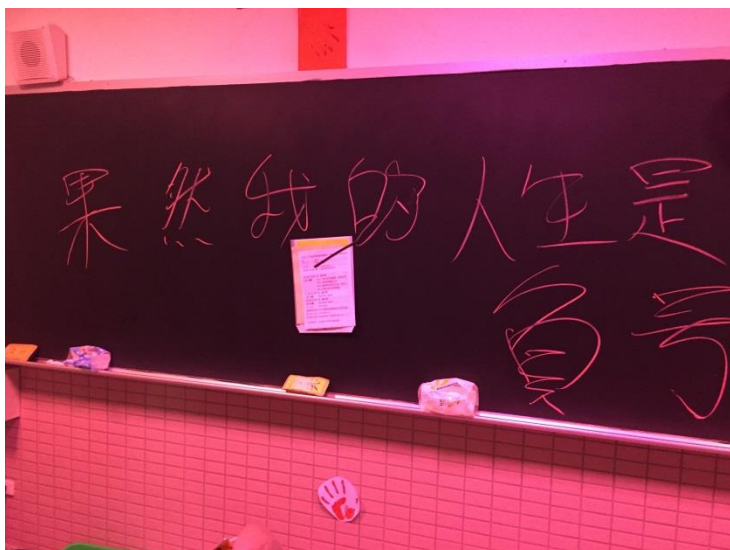 果然我的人生是
負号